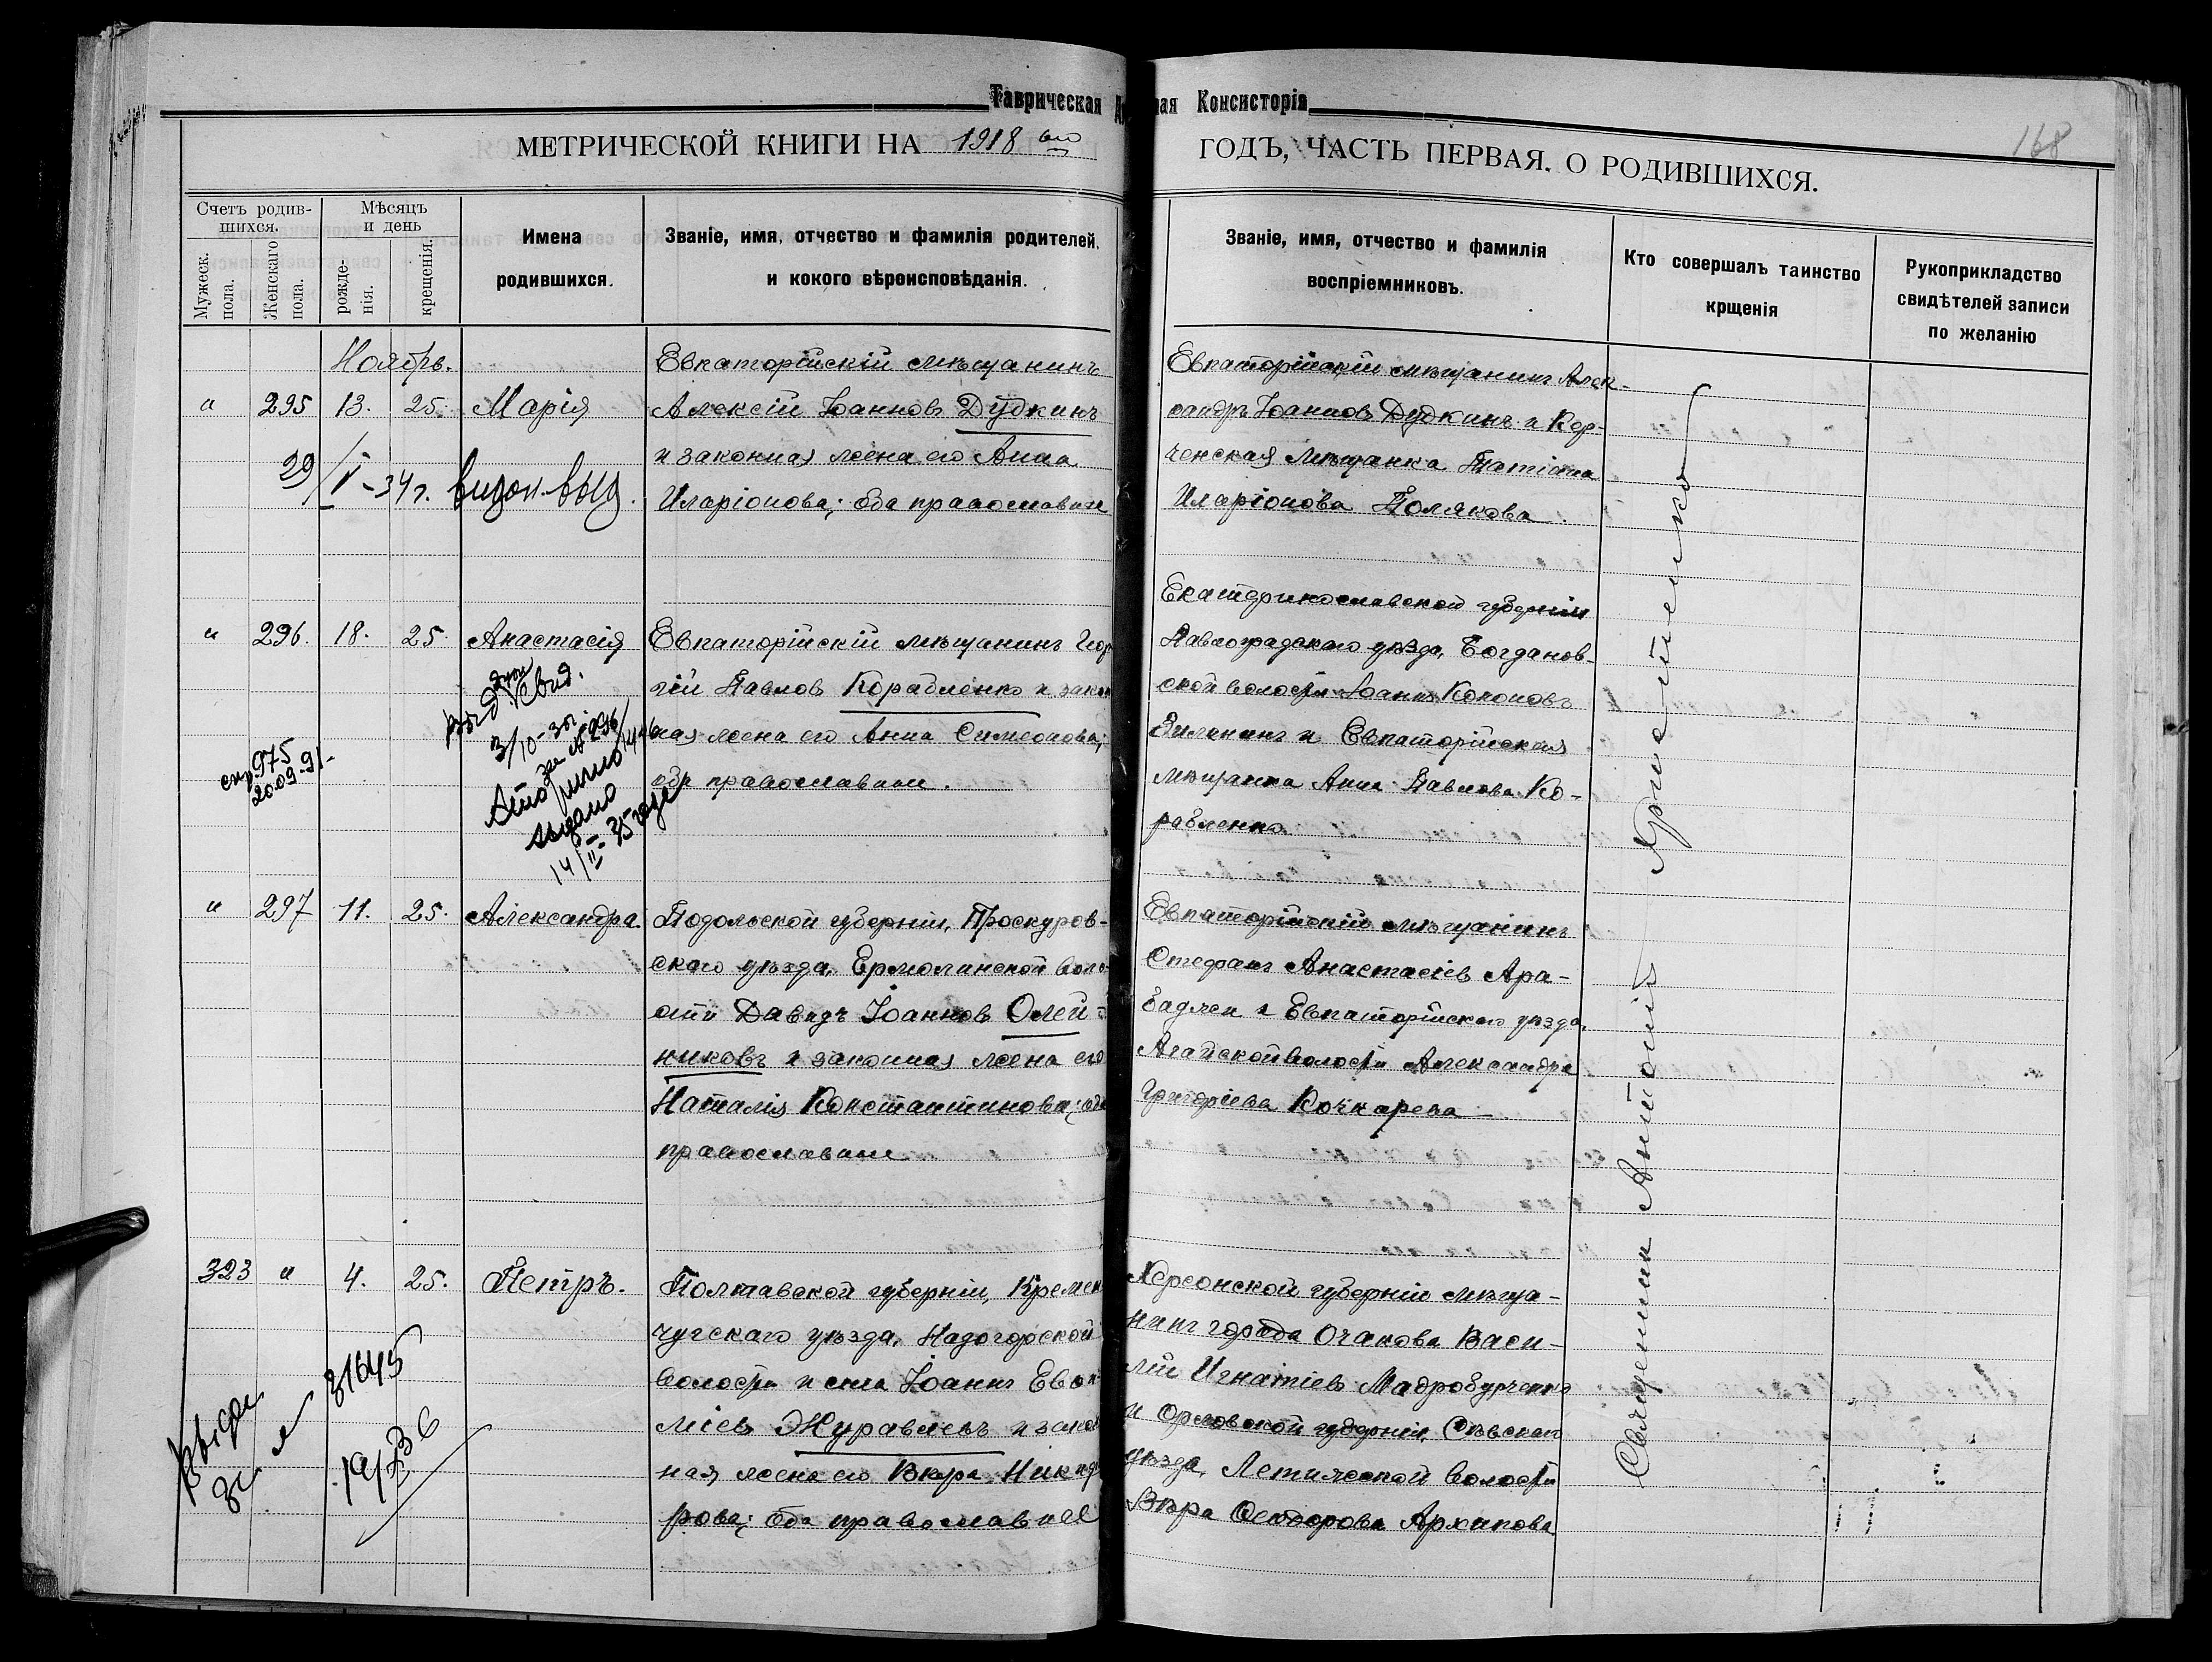 Таврическая
ная Консисторія
МЕТРИЧЕСКОЙ КНИГИ НА 1918 ый
ГОДЪ, ЧАСТЬ ПЕРВАЯ. О РОДИВШИХСЯ.
168
Счетъ родив-
шихся.
Мужеск.
пола.
Женскаго
пола.
Мѣсяцъ
и день
рожде-
нія.
крещенія.
Имена
родившихся.
Званіе, имя, отчество и фамилія родителей,
и кокого вѣроисповѣданія.
Званіе, имя, отчество и фамилія
воспріемниковъ.
Кто совершалъ таинство
крщенія
Рукоприкладство
свидѣтелей записи
по желанію
Ноябрь.
" 295 13. 25. Марія
29/V-34 г.
Евпаторійскій мѣщанинъ
Алексій Іоанновъ Дудкинъ
и законная жена его Анна
Иларіонова; оба православные
Евпаторійскій мѣщанинъ Алек-
сандръ Іоанновъ Дудкинъ и Кер-
ченская мѣщанка Татіана
Иларіонова Полякова.
" 296. 18. 25. Анастасія
Выд. свид.
3/10-30 г.
за № 296
выдано
14/II-35 года
спр. 975
20.09.91
Евпаторійскій мѣщанинъ Геор
гій Павловъ Корабленко и закон
ная жена его Анна Симеонова;
оба православные.
Екатеринославской губерніи
Павлоградскаго уѣзда, Богданов-
ской волости Іоаннъ Кононовъ
Зиленинъ и Евпаторійская
мѣщанка Анна Павлова Ко-
рабленко.
" 297 11. 25. Александра.
Подольской губерніи, Проскуров-
скаго уѣзда, Ермолинской воло-
сти Давидъ Іоанновъ Олей-
никовъ и законная жена его
Наталія Константинова; оба
православные.
Евпаторійскій мѣщанинъ
Стефанъ Анастасіевъ Ара-
баджи и Евпаторійскаго уѣзда,
Агайской волости Александра
Григоріева Кочкарева
323 " 4. 25. Петръ.
31645
19/36
Полтавской губерніи, Кремен
чугскаго уѣзда,
волости Іоаннъ
Журавлевъ и закон
ная жена его Вѣра Никифо
рова; оба православные
Херсонской губерніи мѣща-
нинъ города Очакова Васи-
лій Игнатіевъ
и Орловской губерніи, Сѣвскаго
уѣзда, волости
Вѣра Ѳеодорова Архипова
Священникъ Антоній Христенко